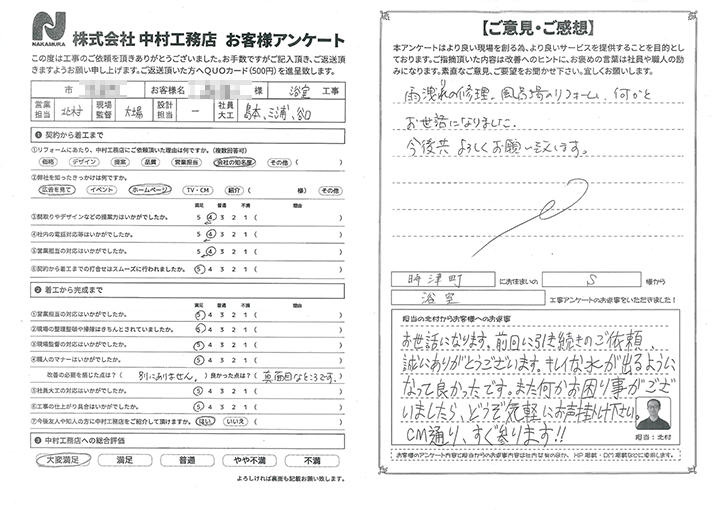 N
NAKAMURA
株式会社 中村工務店 お客様アンケート
この度は工事のご依頼を頂きありがとうございました。お手数ですがご記入頂き、ご返送頂
きますようお願い申し上げます。ご返送頂いた方へQUOカード(500円)を進呈致します。
市 お客様名 様 浴室 工事
営業担当 北村 現場監督 大場 設計担当 ー 社員大工 島本、三浦、谷口
❶ 契約から着工まで
①リフォームにあたり、中村工務店にご依頼頂いた理由は何ですか。(複数回答可)
価格 デザイン 提案 品質 営業担当 会社の知名度 その他( )
②弊社を知ったきっかけは何ですか。
広告を見て イベント ホームページ TV・CM 紹介( 様) その他
満足 普通 不満 理由
③間取りやデザインなどの提案力はいかがでしたか。 5 4 3 2 1 ( )
④社内の電話対応等はいかがでしたか。 5 4 3 2 1 ( )
⑤営業担当の対応はいかがでしたか。 5 4 3 2 1 ( )
⑥契約から着工までの打合せはスムーズに行われましたか。 5 4 3 2 1 ( )
❷ 着工から完成まで
満足 普通 不満 理由
①営業担当の対応はいかがでしたか。 5 4 3 2 1 ( )
②現場の整理整頓や掃除はきちんとされていましたか。 5 4 3 2 1 ( )
③現場監督の対応はいかがでしたか。 5 4 3 2 1 ( )
④職人のマナーはいかがでしたか。 5 4 3 2 1 ( )
改善の必要を感じた点は?( 別にありません。 ) 良かった点は?( 真面目なところです。 )
⑤社員大工の対応はいかがでしたか。 5 4 3 2 1 ( )
⑥工事の仕上がり具合はいかがでしたか。 5 4 3 2 1 ( )
⑦今後友人や知人の方に中村工務店をご紹介して頂けますか。 はい いいえ ( )
❸ 中村工務店への総合評価
大変満足 満足 普通 やや不満 不満
よろしければ裏面も記載お願い致します。
【ご意見・ご感想】
本アンケートはより良い現場を創る為、より良いサービスを提供することを目的とし
ております。ご指摘頂いた内容は改善へのヒントに、お褒めの言葉は社員や職人の励
みになります。素直なご意見、ご要望をお聞かせ下さい。宜しくお願いします。
雨洩れの修理、風呂場のリフォーム、何かと
お世話になりました。
今後共よろしくお願い致します。
時津町 にお住まいの S 様から
浴室 工事アンケートのお返事をいただきました!
担当の北村からお客様へのお返事
お世話になります。前回に引き続きのご依頼、
誠にありがとうございます。キレイな水が出るように
なって良かったです。また何かお困り事がござ
いましたら、どうぞ気軽にお声掛け下さい。
CM通り、すぐ参ります!!
担当:北村